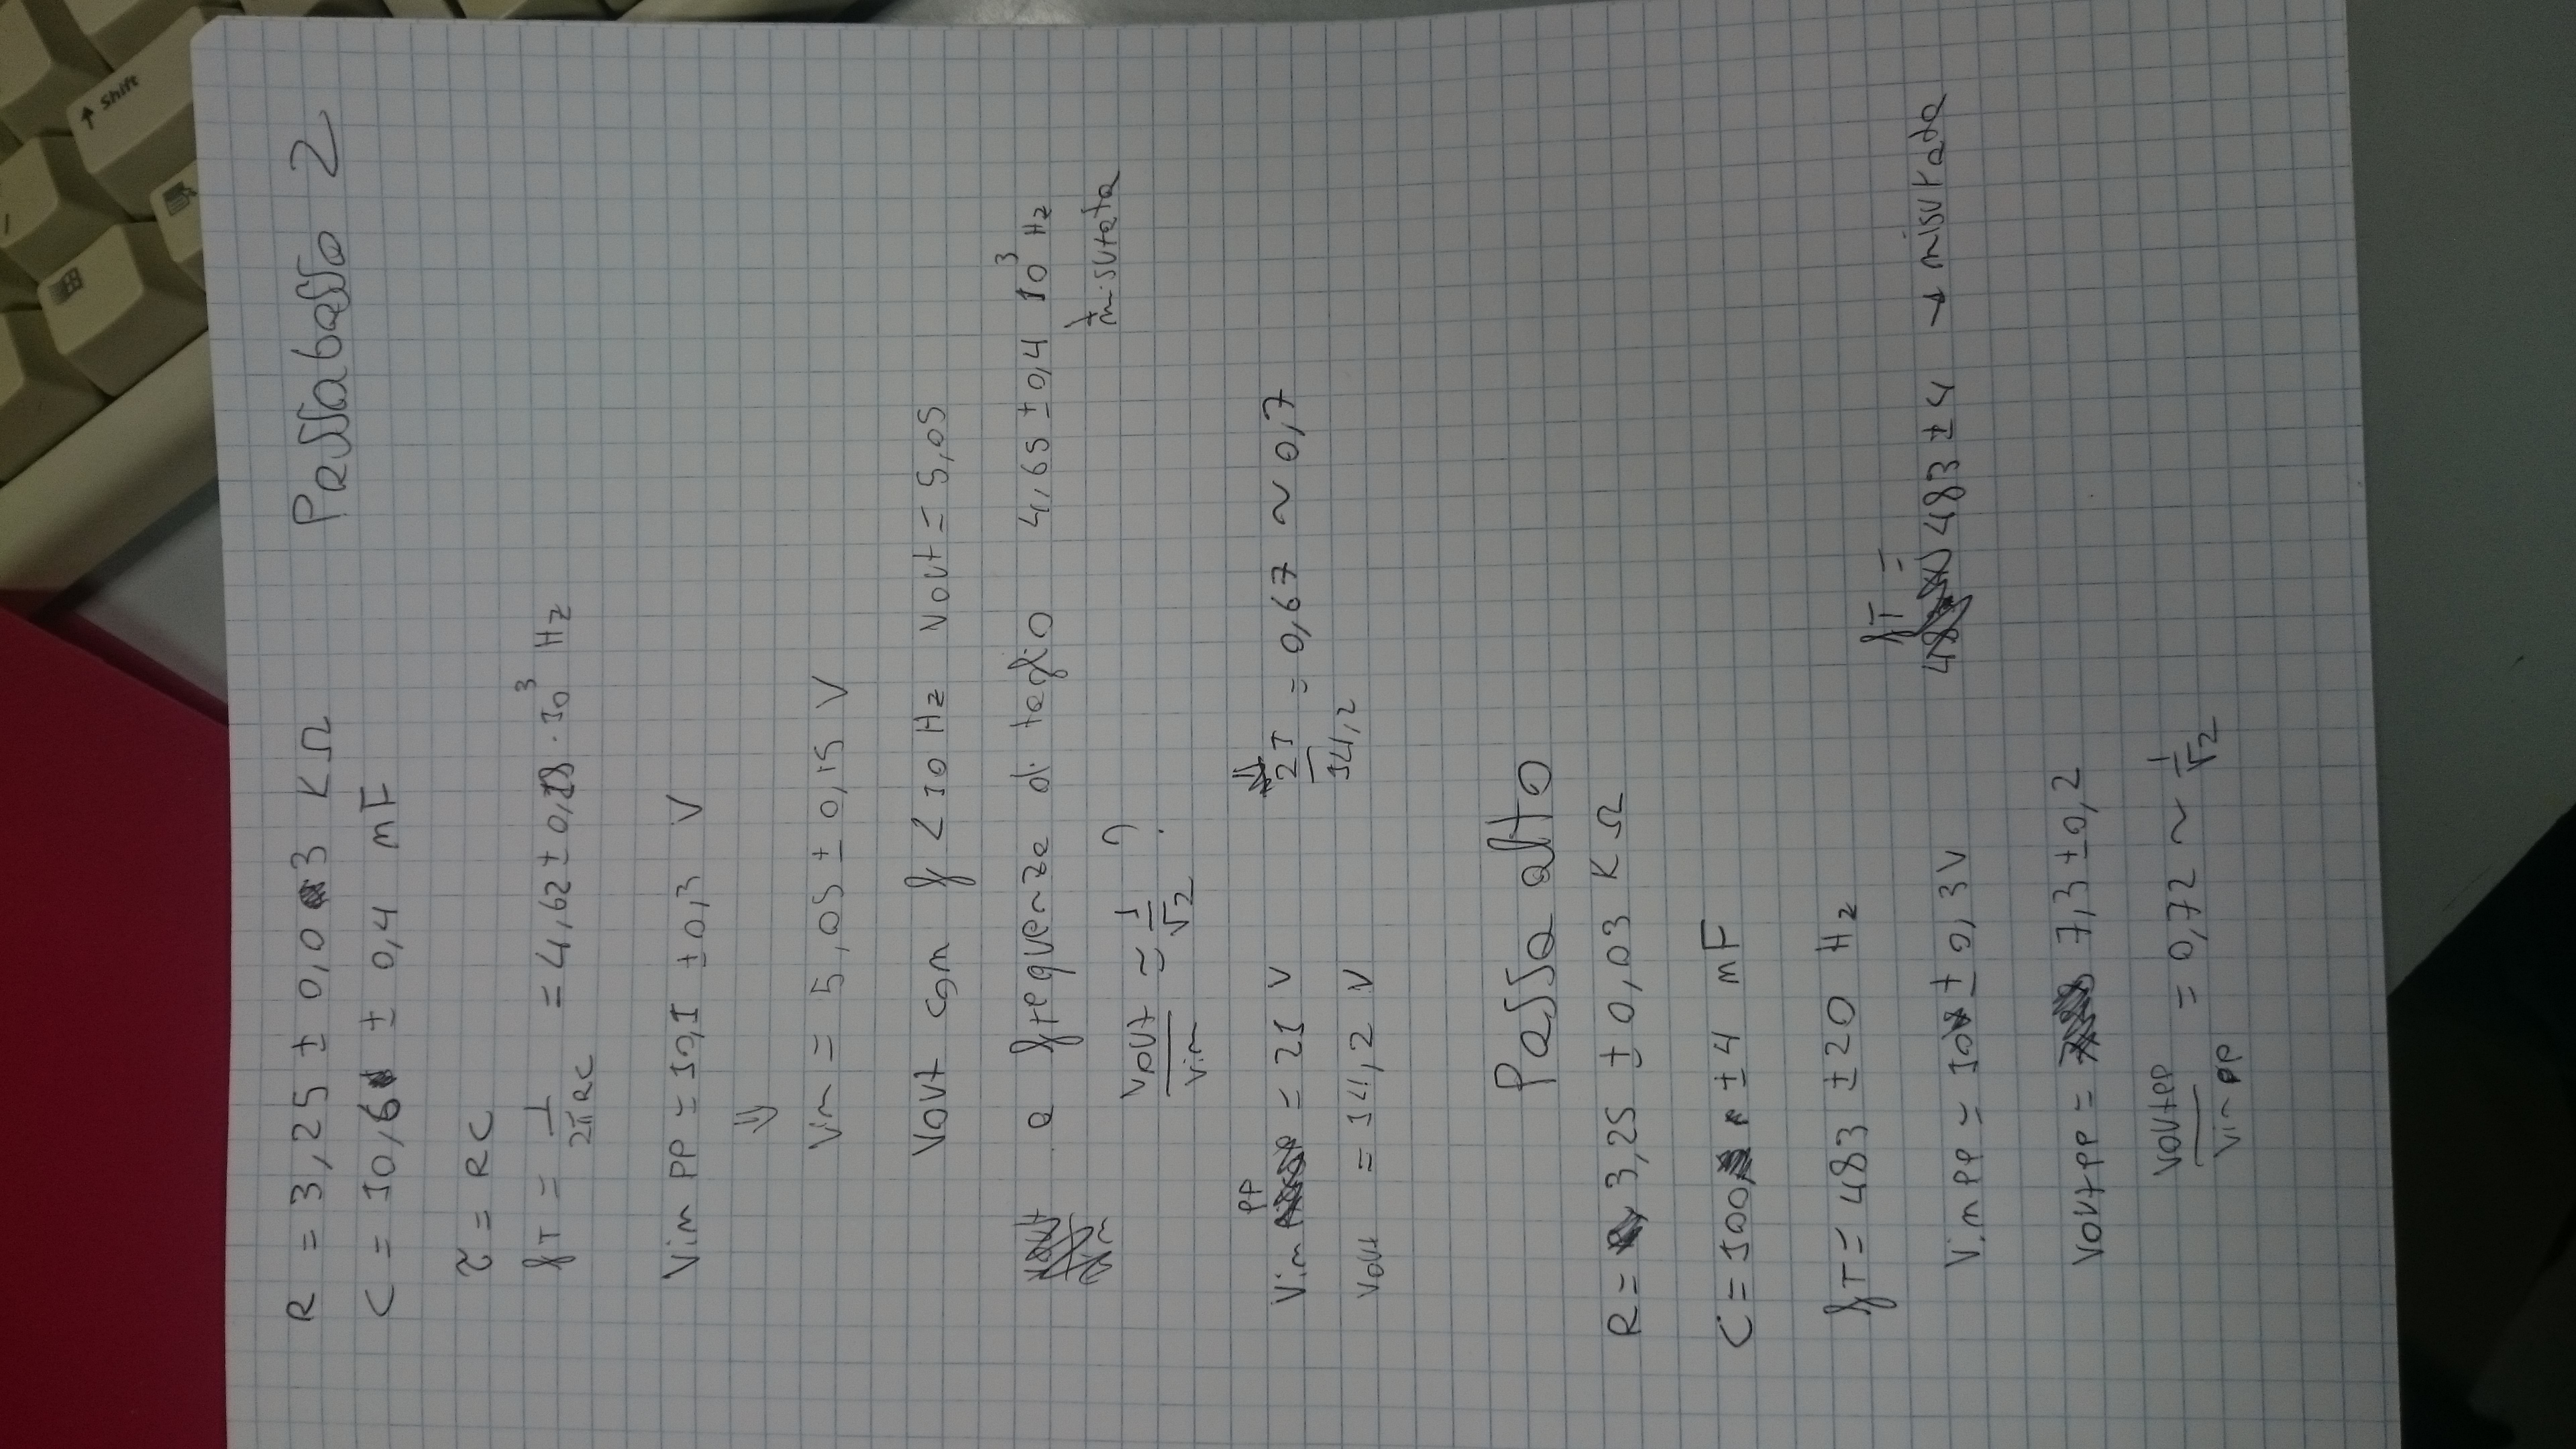 Shift
Passabasso 2
R = 3,25 ± 0,03 KΩ
C = 10,6 ± 0,4 mF
τ = RC
fT = 1/2πRC = 4,62 ± 0,18 · 10³ Hz
Vin PP = 10,1 ± 0,3 V
⇓
Vin = 5,05 ± 0,15 V
Vout con f < 10 Hz Vout = 5,05
a frequenza di taglio 4,65 ± 0,4 10³ Hz
misurata
Vout/Vin ≃ 1/√2 ?
Vin PP = 21 V
21/14,2 = 0,67 ~ 0,7
Vout = 14,2 V
Passa alto
R = 3,25 ± 0,03 KΩ
C = 100 ± 4 mF
fT = 483 ± 20 Hz
fT =
483 ± 4 → misurata
Vin PP = 10 ± 0,3 V
Vout PP = 7,3 ± 0,2
Vout PP/Vin PP = 0,72 ~ 1/√2